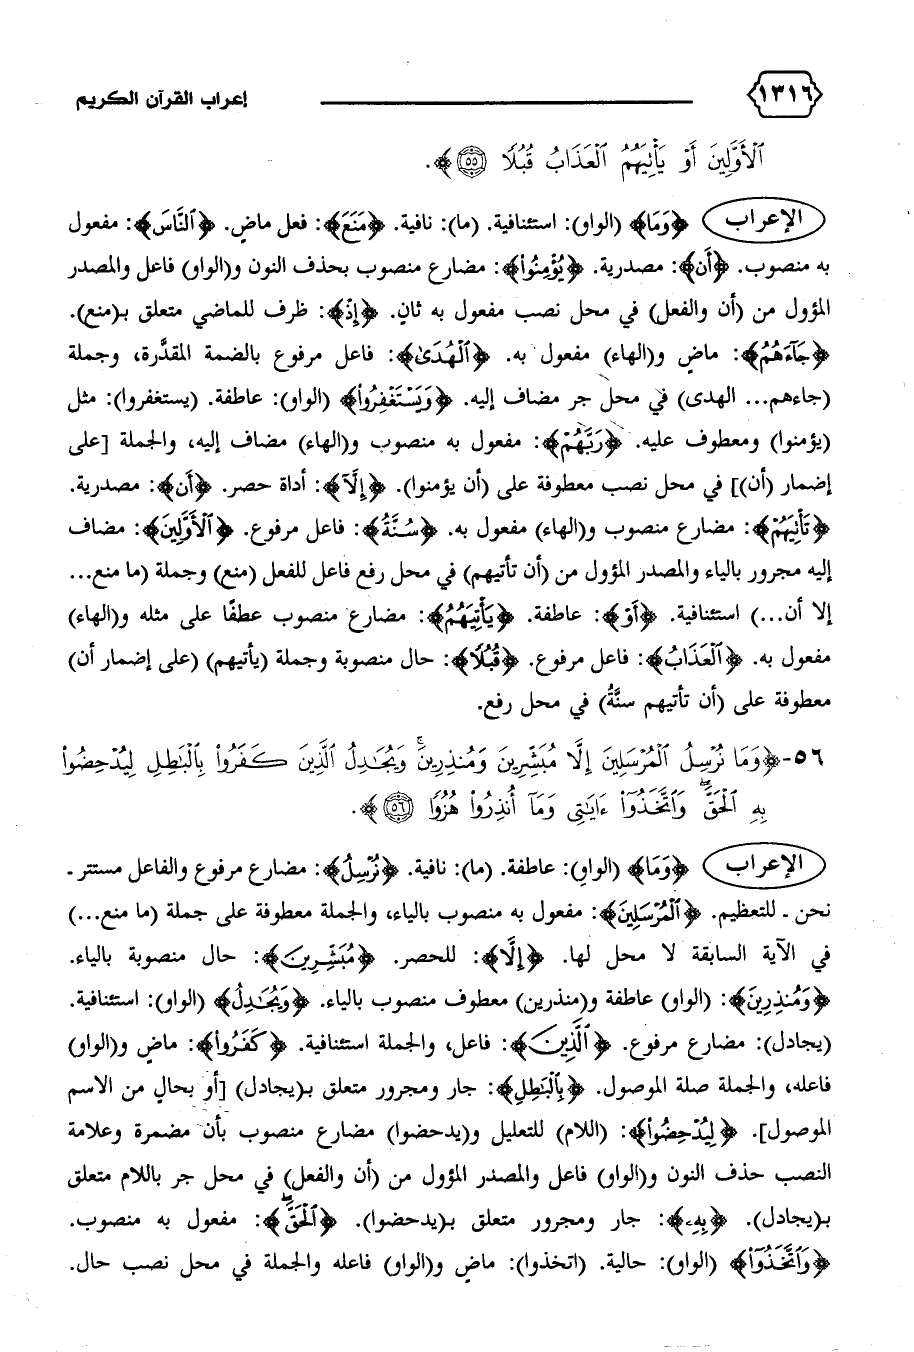 ١٣١٦ إعراب القرآن الكريم
ٱلْأَوَّلِينَ أَوْ يَأْتِيَهُمُ ٱلْعَذَابُ قُبُلًا ﴿٥٥﴾.
الإعراب ﴿وَمَا﴾ (الواو): استئنافية. (ما): نافية. ﴿مَنَعَ﴾: فعل ماضٍ. ﴿ٱلنَّاسَ﴾: مفعول
به منصوب. ﴿أَن﴾: مصدرية. ﴿يُؤْمِنُوٓا۟﴾: مضارع منصوب بحذف النون و(الواو) فاعل والمصدر
المؤول من (أن والفعل) في محل نصب مفعول به ثانٍ. ﴿إِذْ﴾: ظرف للماضي متعلق بـ(منع).
﴿جَآءَهُمُ﴾: ماضٍ و(الهاء) مفعول به. ﴿ٱلْهُدَىٰ﴾: فاعل مرفوع بالضمة المقدَّرة، وجملة
(جاءهم... الهدى) في محل جر مضاف إليه. ﴿وَيَسْتَغْفِرُوا۟﴾ (الواو): عاطفة. (يستغفروا): مثل
(يؤمنوا) ومعطوف عليه. ﴿رَبَّهُمْ﴾: مفعول به منصوب و(الهاء) مضاف إليه، والجملة [على
إضمار (أن)] في محل نصب معطوفة على (أن يؤمنوا). ﴿إِلَّآ﴾: أداة حصر. ﴿أَن﴾: مصدرية.
﴿تَأْتِيَهُمْ﴾: مضارع منصوب و(الهاء) مفعول به. ﴿سُنَّةُ﴾: فاعل مرفوع. ﴿ٱلْأَوَّلِينَ﴾: مضاف
إليه مجرور بالياء والمصدر المؤول من (أن تأتيهم) في محل رفع فاعل للفعل (منع) وجملة (ما منع...
إلا أن...) استئنافية. ﴿أَوْ﴾: عاطفة. ﴿يَأْتِيَهُمُ﴾: مضارع منصوب عطفًا على مثله و(الهاء)
مفعول به. ﴿ٱلْعَذَابُ﴾: فاعل مرفوع. ﴿قُبُلًا﴾: حال منصوبة وجملة (يأتيهم) (على إضمار أن)
معطوفة على (أن تأتيهم سنَّةُ) في محل رفع.
٥٦- ﴿وَمَا نُرْسِلُ ٱلْمُرْسَلِينَ إِلَّا مُبَشِّرِينَ وَمُنذِرِينَ ۚ وَيُجَٰدِلُ ٱلَّذِينَ كَفَرُوا۟ بِٱلْبَٰطِلِ لِيُدْحِضُوا۟
بِهِ ٱلْحَقَّ ۖ وَٱتَّخَذُوٓا۟ ءَايَٰتِى وَمَآ أُنذِرُوا۟ هُزُوًا ﴿٥٦﴾.
الإعراب ﴿وَمَا﴾ (الواو): عاطفة. (ما): نافية. ﴿نُرْسِلُ﴾: مضارع مرفوع والفاعل مستتر ـ
نحن ـ للتعظيم. ﴿ٱلْمُرْسَلِينَ﴾: مفعول به منصوب بالياء، والجملة معطوفة على جملة (ما منع...)
في الآية السابقة لا محل لها. ﴿إِلَّا﴾: للحصر. ﴿مُبَشِّرِينَ﴾: حال منصوبة بالياء.
﴿وَمُنذِرِينَ﴾: (الواو) عاطفة و(منذرين) معطوف منصوب بالياء. ﴿وَيُجَٰدِلُ﴾ (الواو): استئنافية.
(يجادل): مضارع مرفوع. ﴿ٱلَّذِينَ﴾: فاعل، والجملة استئنافية. ﴿كَفَرُوا۟﴾: ماضٍ و(الواو)
فاعله، والجملة صلة الموصول. ﴿بِٱلْبَٰطِلِ﴾: جار ومجرور متعلق بـ(يجادل) [أو بحالٍ من الاسم
الموصول]. ﴿لِيُدْحِضُوا۟﴾: (اللام) للتعليل و(يدحضوا) مضارع منصوب بأن مضمرة وعلامة
النصب حذف النون و(الواو) فاعل والمصدر المؤول من (أن والفعل) في محل جر باللام متعلق
بـ(يجادل). ﴿بِهِۦ﴾: جار ومجرور متعلق بـ(يدحضوا). ﴿ٱلْحَقَّ ۖ﴾: مفعول به منصوب.
﴿وَٱتَّخَذُوٓا۟﴾ (الواو): حالية. (اتخذوا): ماضٍ و(الواو) فاعله والجملة في محل نصب حال.